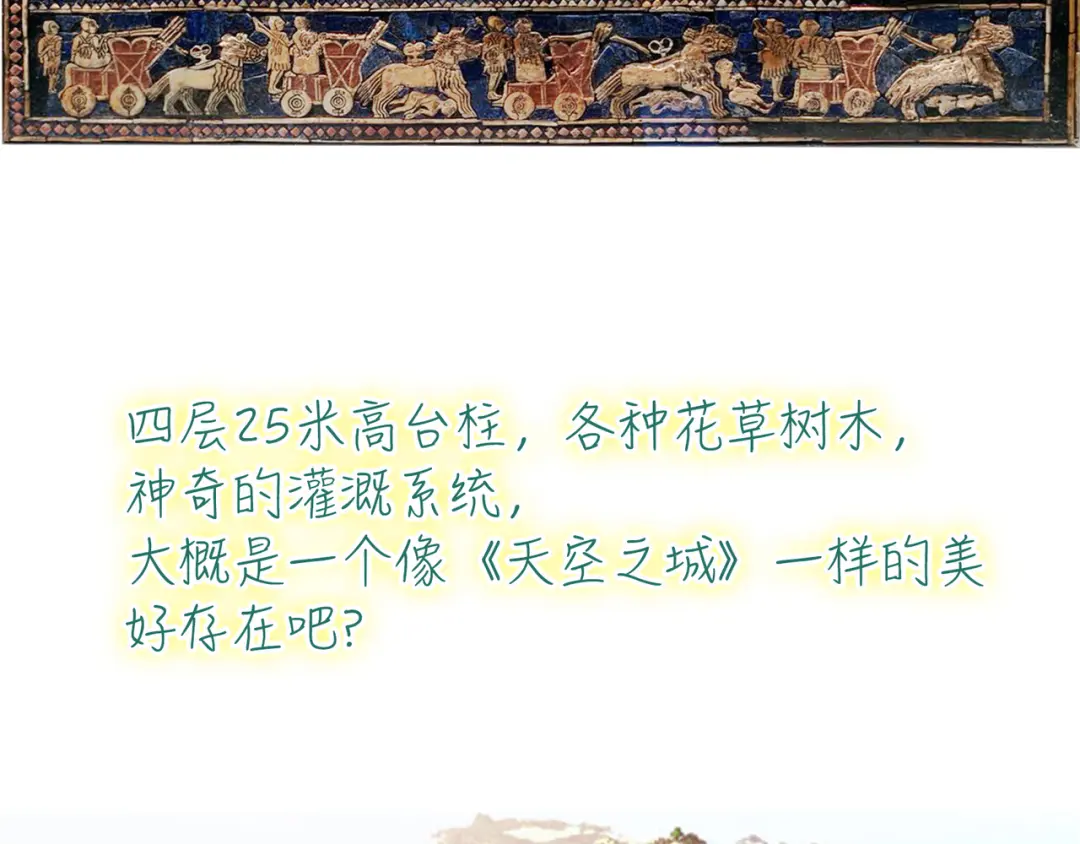 四层25米高台柱，各种花草树木，
神奇的灌溉系统，
大概是一个像《天空之城》一样的美
好存在吧？